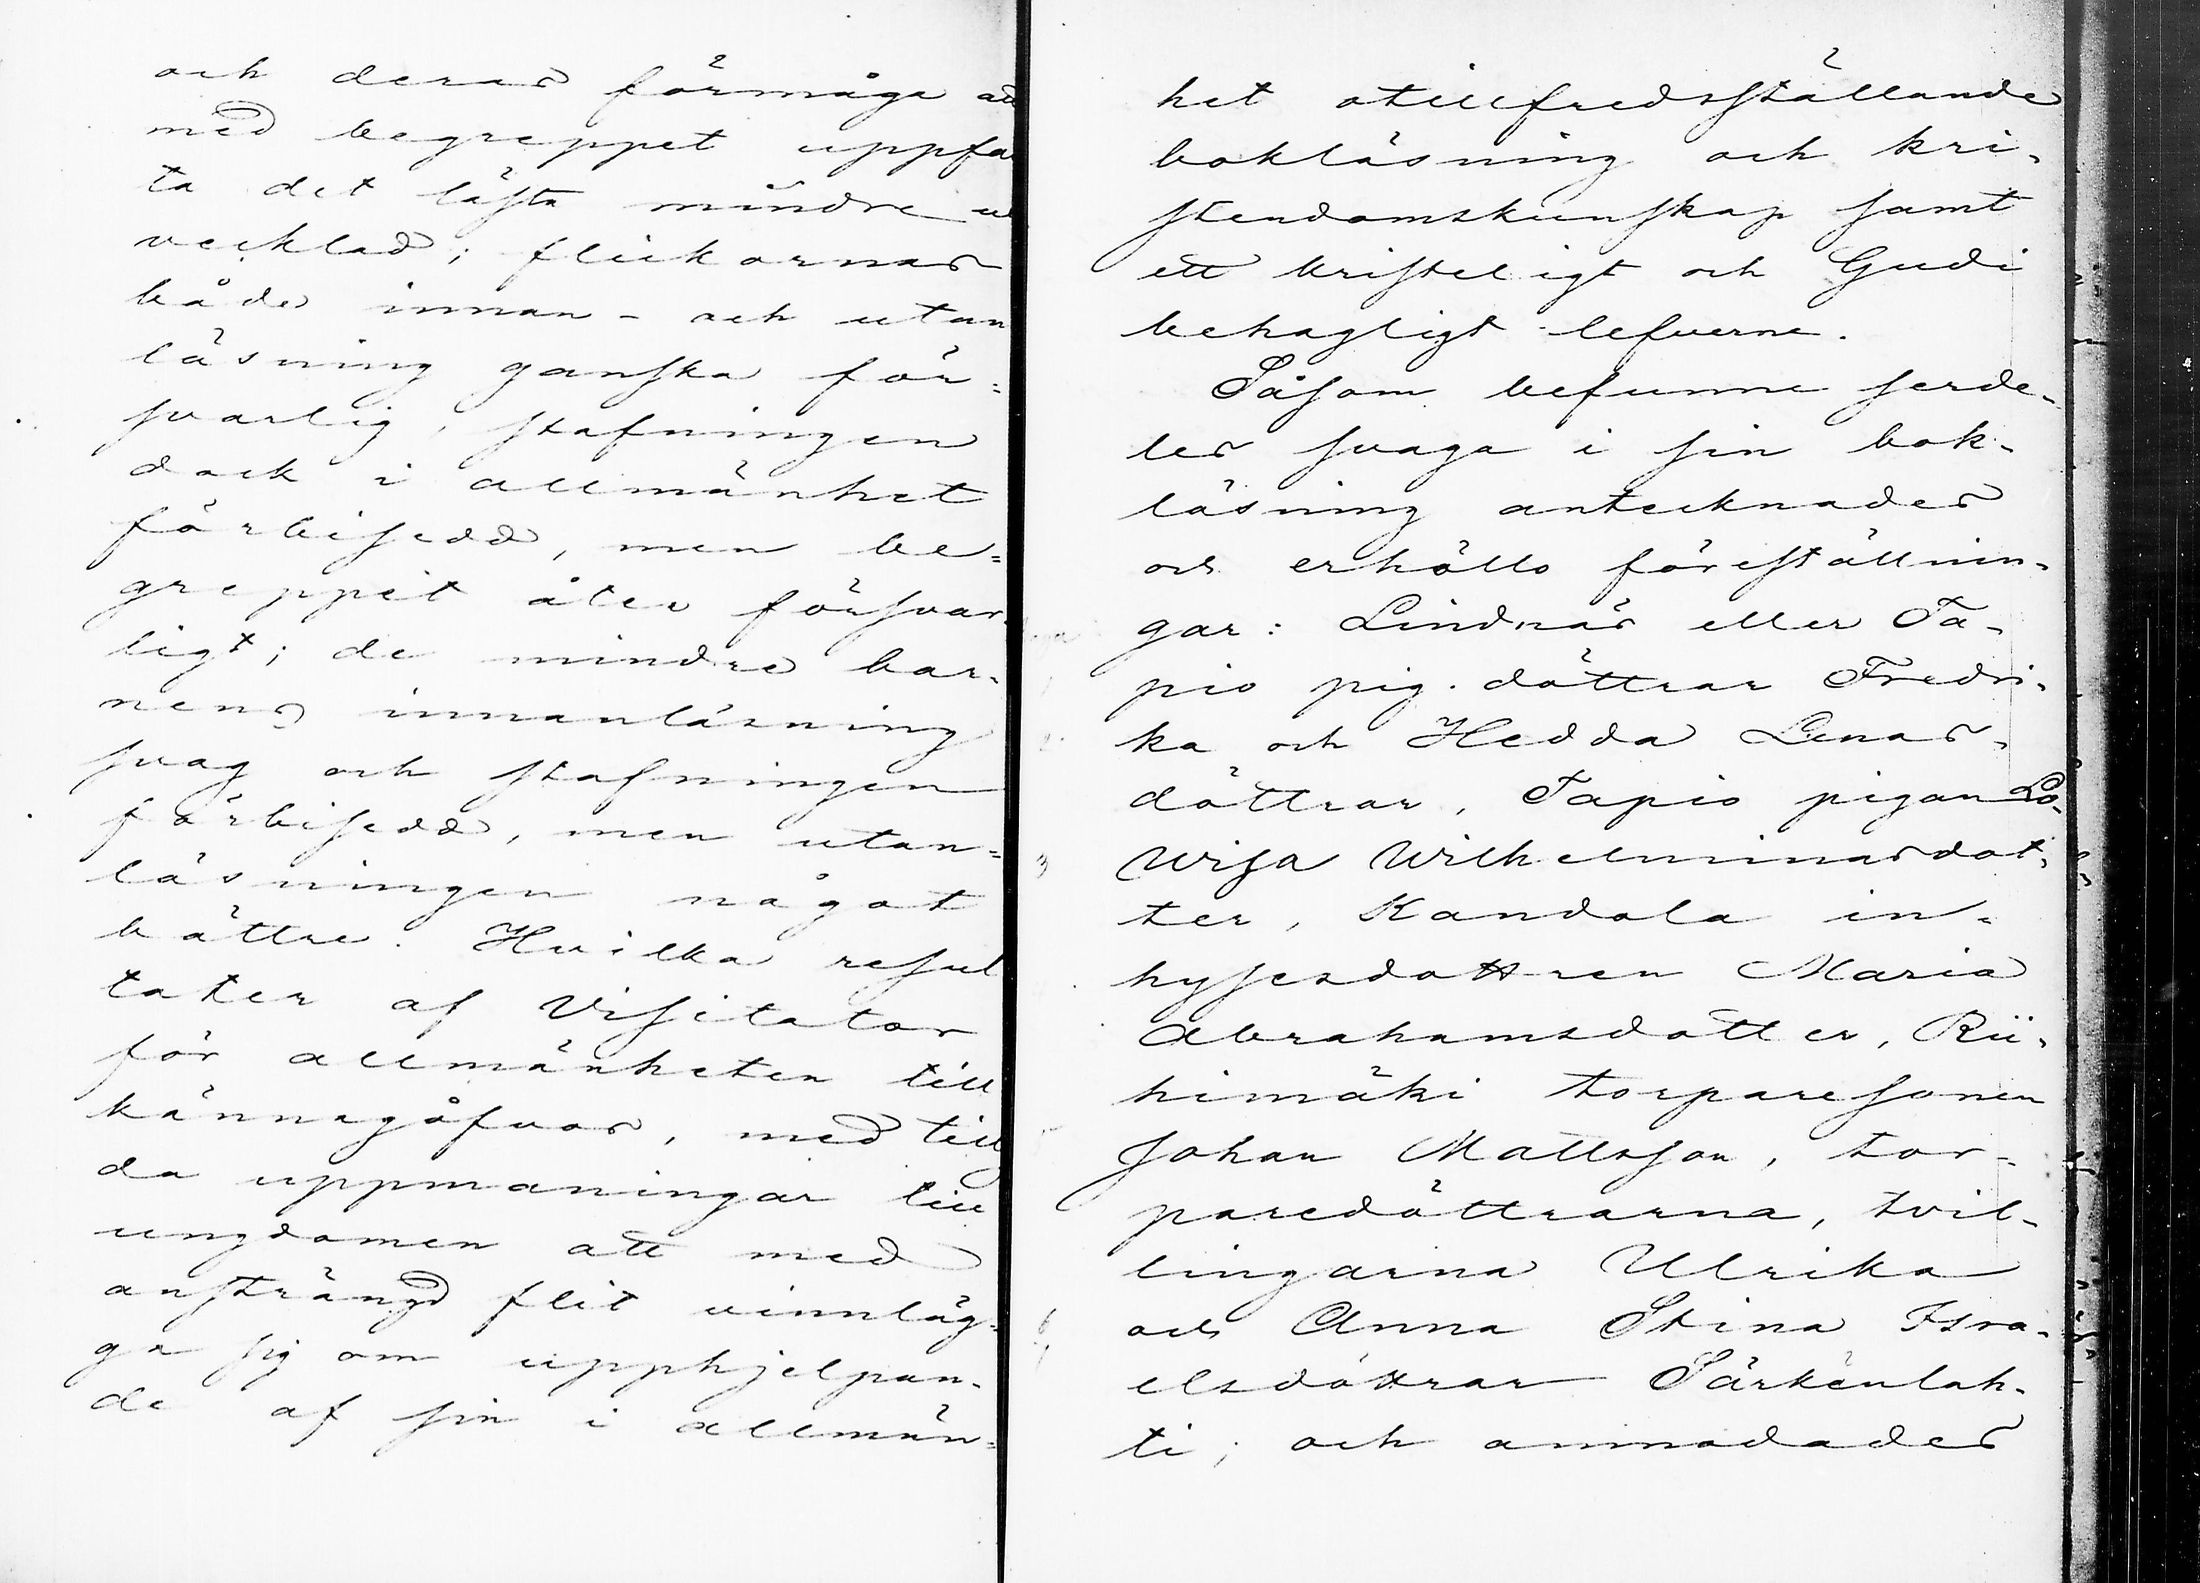 och deras förmåga att
med begreppet uppfa
ta det lästa mindre ut
vecklad; flickornas
både innan- och utan
läsning ganska för=
svarlig, stafningen
dock i allmänhet
förbisedd, men be=
greppet åter försvar
ligt; de mindre bar-
nens innanläsning
svag och stafningen
förbisedd, men utan=
läsningen något
bättre. Hvilka resul
tater af Visitator
för allmänheten till
kännagåfvos, med till
da uppmaningar till
ungdomen att med
ansträngd flit vinnläg=
ga sig om upphjelpan-
de af sin i allmän=
het otillfredsställande
bokläsning och kri-
stendomskunskap samt
ett kristeligt och Gudi
behagligt lefverne.
Såsom befunne serde-
les svaga i sin bok-
läsning antecknades
och erhöllo föreställnin-
gar: Lindnäs eller Ta-
pio pig. döttrar Fredri-
ka och Hedda Lenas-
döttrar, Tapio pigan Lo-
wisa Wilhelminasdot-
ter, Kandola in-
hysesdottren Maria
Abrahamsdotter, Rii-
himäki torparesonen
Johan Mattsson, tor-
paredöttrarna, tvil-
lingarna Ulrika
och Anna Stina Isra-
elsdöttrar Särkenlah-
ti; och anmodades